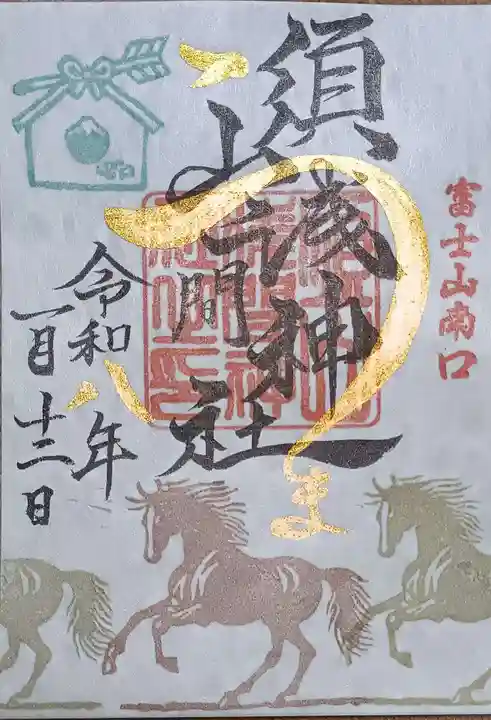 富士山南口
須山浅間神社
うま
令和八年
一月十三日